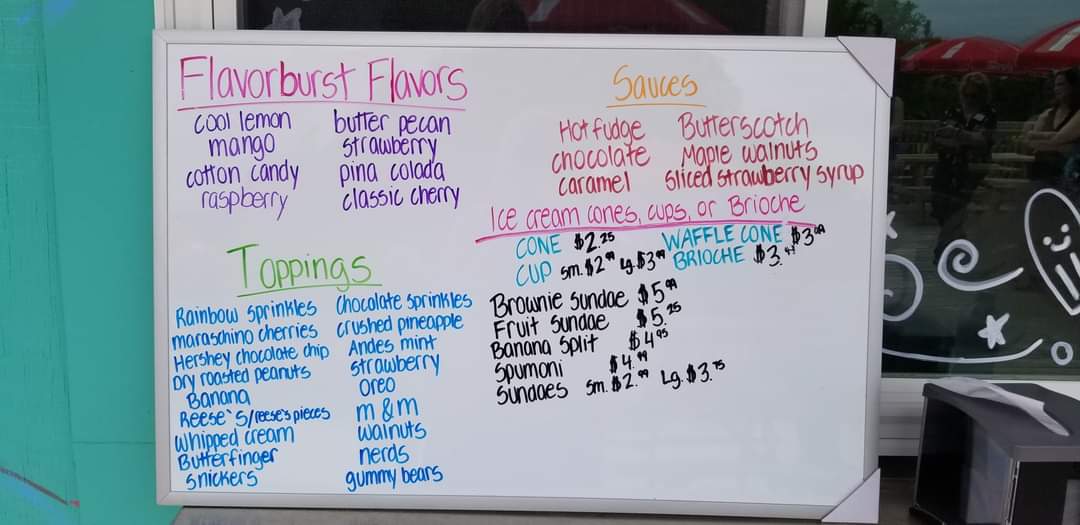 Flavorburst Flavors
cool lemon butter pecan
mango strawberry
cotton candy pina colada
raspberry classic cherry
Toppings
Rainbow sprinkles chocolate sprinkles
maraschino cherries crushed pineapple
Hershey chocolate chip Andes mint
Dry roasted peanuts strawberry
Banana oreo
Reese's/reese's pieces m&m
whipped cream walnuts
Butterfinger nerds
snickers gummy bears
Sauces
Hot fudge Butterscotch
chocolate Maple walnuts
caramel sliced strawberry syrup
Ice cream cones, cups, or Brioche
CONE $2.25 WAFFLE CONE
CUP sm. $2.99 Lg. $3.99 BRIOCHE
Brownie Sundae $5.99
Fruit Sundae $5.25
Banana Split $4.95
Spumoni $4.99
Sundaes sm. $2.99 Lg. $3.75